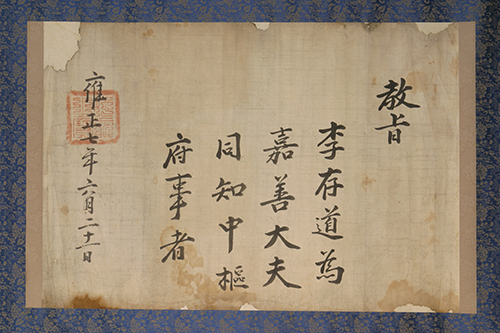 教旨
李存道為
嘉善大夫
同知中樞
府事者
雍正七年六月二十一日